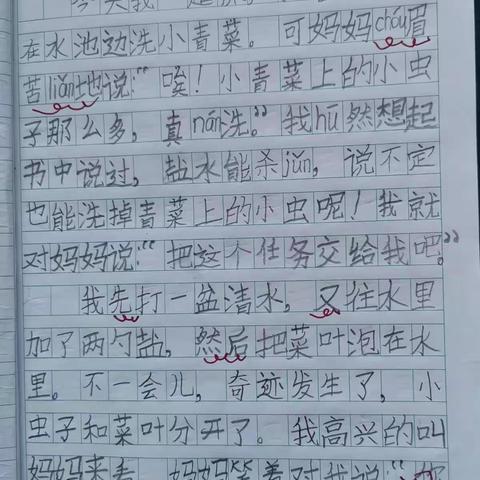 今天我
在水池边洗小青菜。可妈妈chóu眉
苦liǎn地说:“唉!小青菜上的小虫
子那么多,真nán洗。”我hū然想起
书中说过,盐水能杀jūn,说不定
也能洗掉青菜上的小虫呢!我就
对妈妈说:“把这个任务交给我吧。”
我先打一盆清水,又往水里
加了两勺盐,然后把菜叶泡在水
里。不一会儿,奇迹发生了,小
虫子和菜叶分开了。我高兴的叫
妈妈来看,妈妈笑着对我说:“